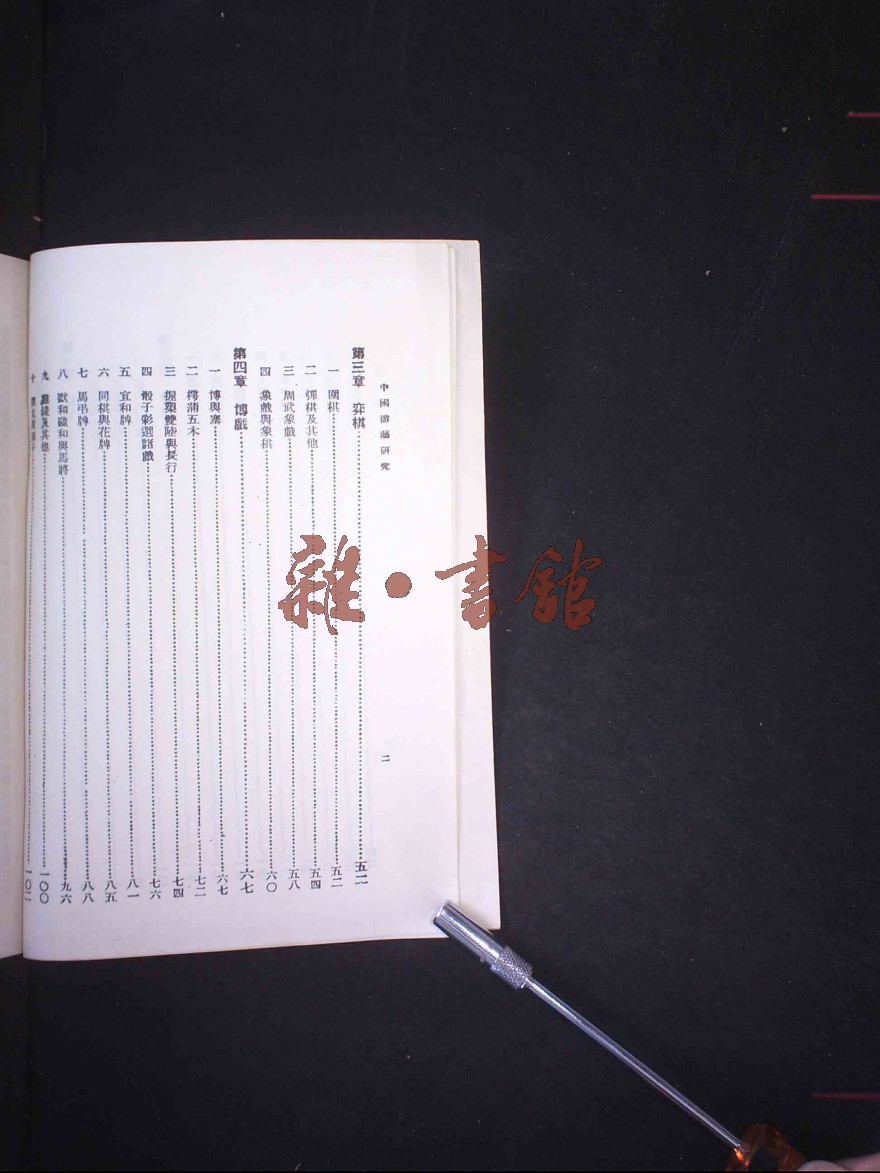 中國游藝研究
二
第三章 弈棋……五二
一 圍棋……五二
二 彈棋及其他……五四
三 周武象戲……五八
四 象戲與象棋……六〇
第四章 博戲……六七
一 博與塞……六七
二 樗蒲五木……七二
三 握槊雙陸與長行……七四
四 骰子彩選諸戲……七六
五 宣和牌……八一
六 同棋與花牌……八五
七 馬弔牌……八八
八 默和碰和與馬將……九六
九 及其他……一〇〇
十……一〇二
雜·書館